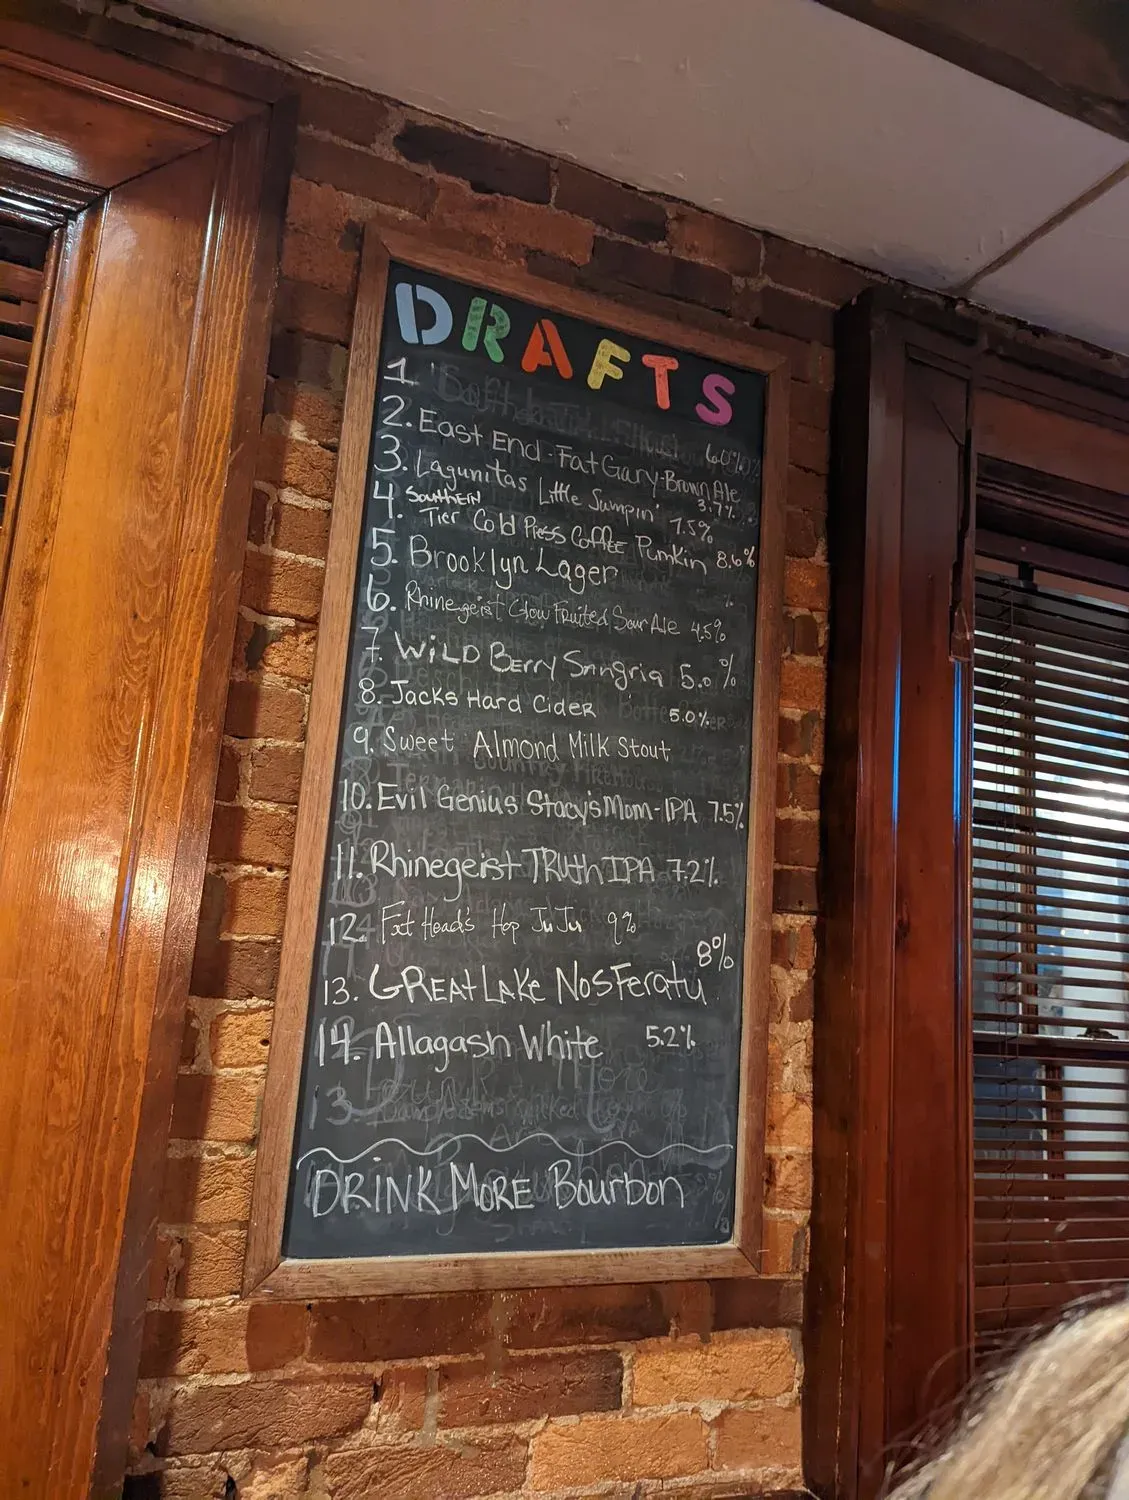 DRAFTS
1
2. East End-Fat Gary-Brown Ale 3.7%
3. Lagunitas Little Sumpin' 7.5%
4. Southern Tier Cold Press Coffee Pumkin 8.6%
5. Brooklyn Lager %
6. Rhinegeist Glow Fruited Sour Ale 4.5%
7. WiLD BERRY Sangria 5.0%
8. Jacks Hard Cider 5.0%
9. Sweet Almond Milk Stout
10. Evil Genius Stacy's Mom-IPA 7.5%
11. Rhinegeist TRUth IPA 7.2%
12. Fat Head's Hop JuJu 9%
13. GREAT LAKe NOSFeratu 8%
14. Allagash White 5.2%
DRiNK MORE Bourbon